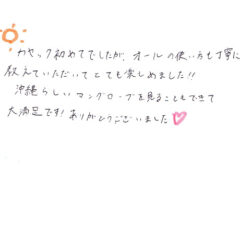 カヤック初めてでしたが、オールの使い方も丁寧に
教えていただいてとても楽しめました!!
沖縄らしいマングローブを見ることもできて
大満足です!ありがとうございました